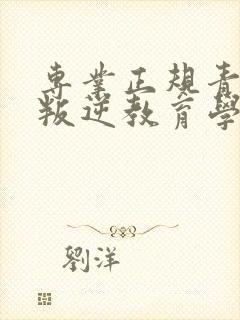 專業正規青
叛逆教育學
劉洋